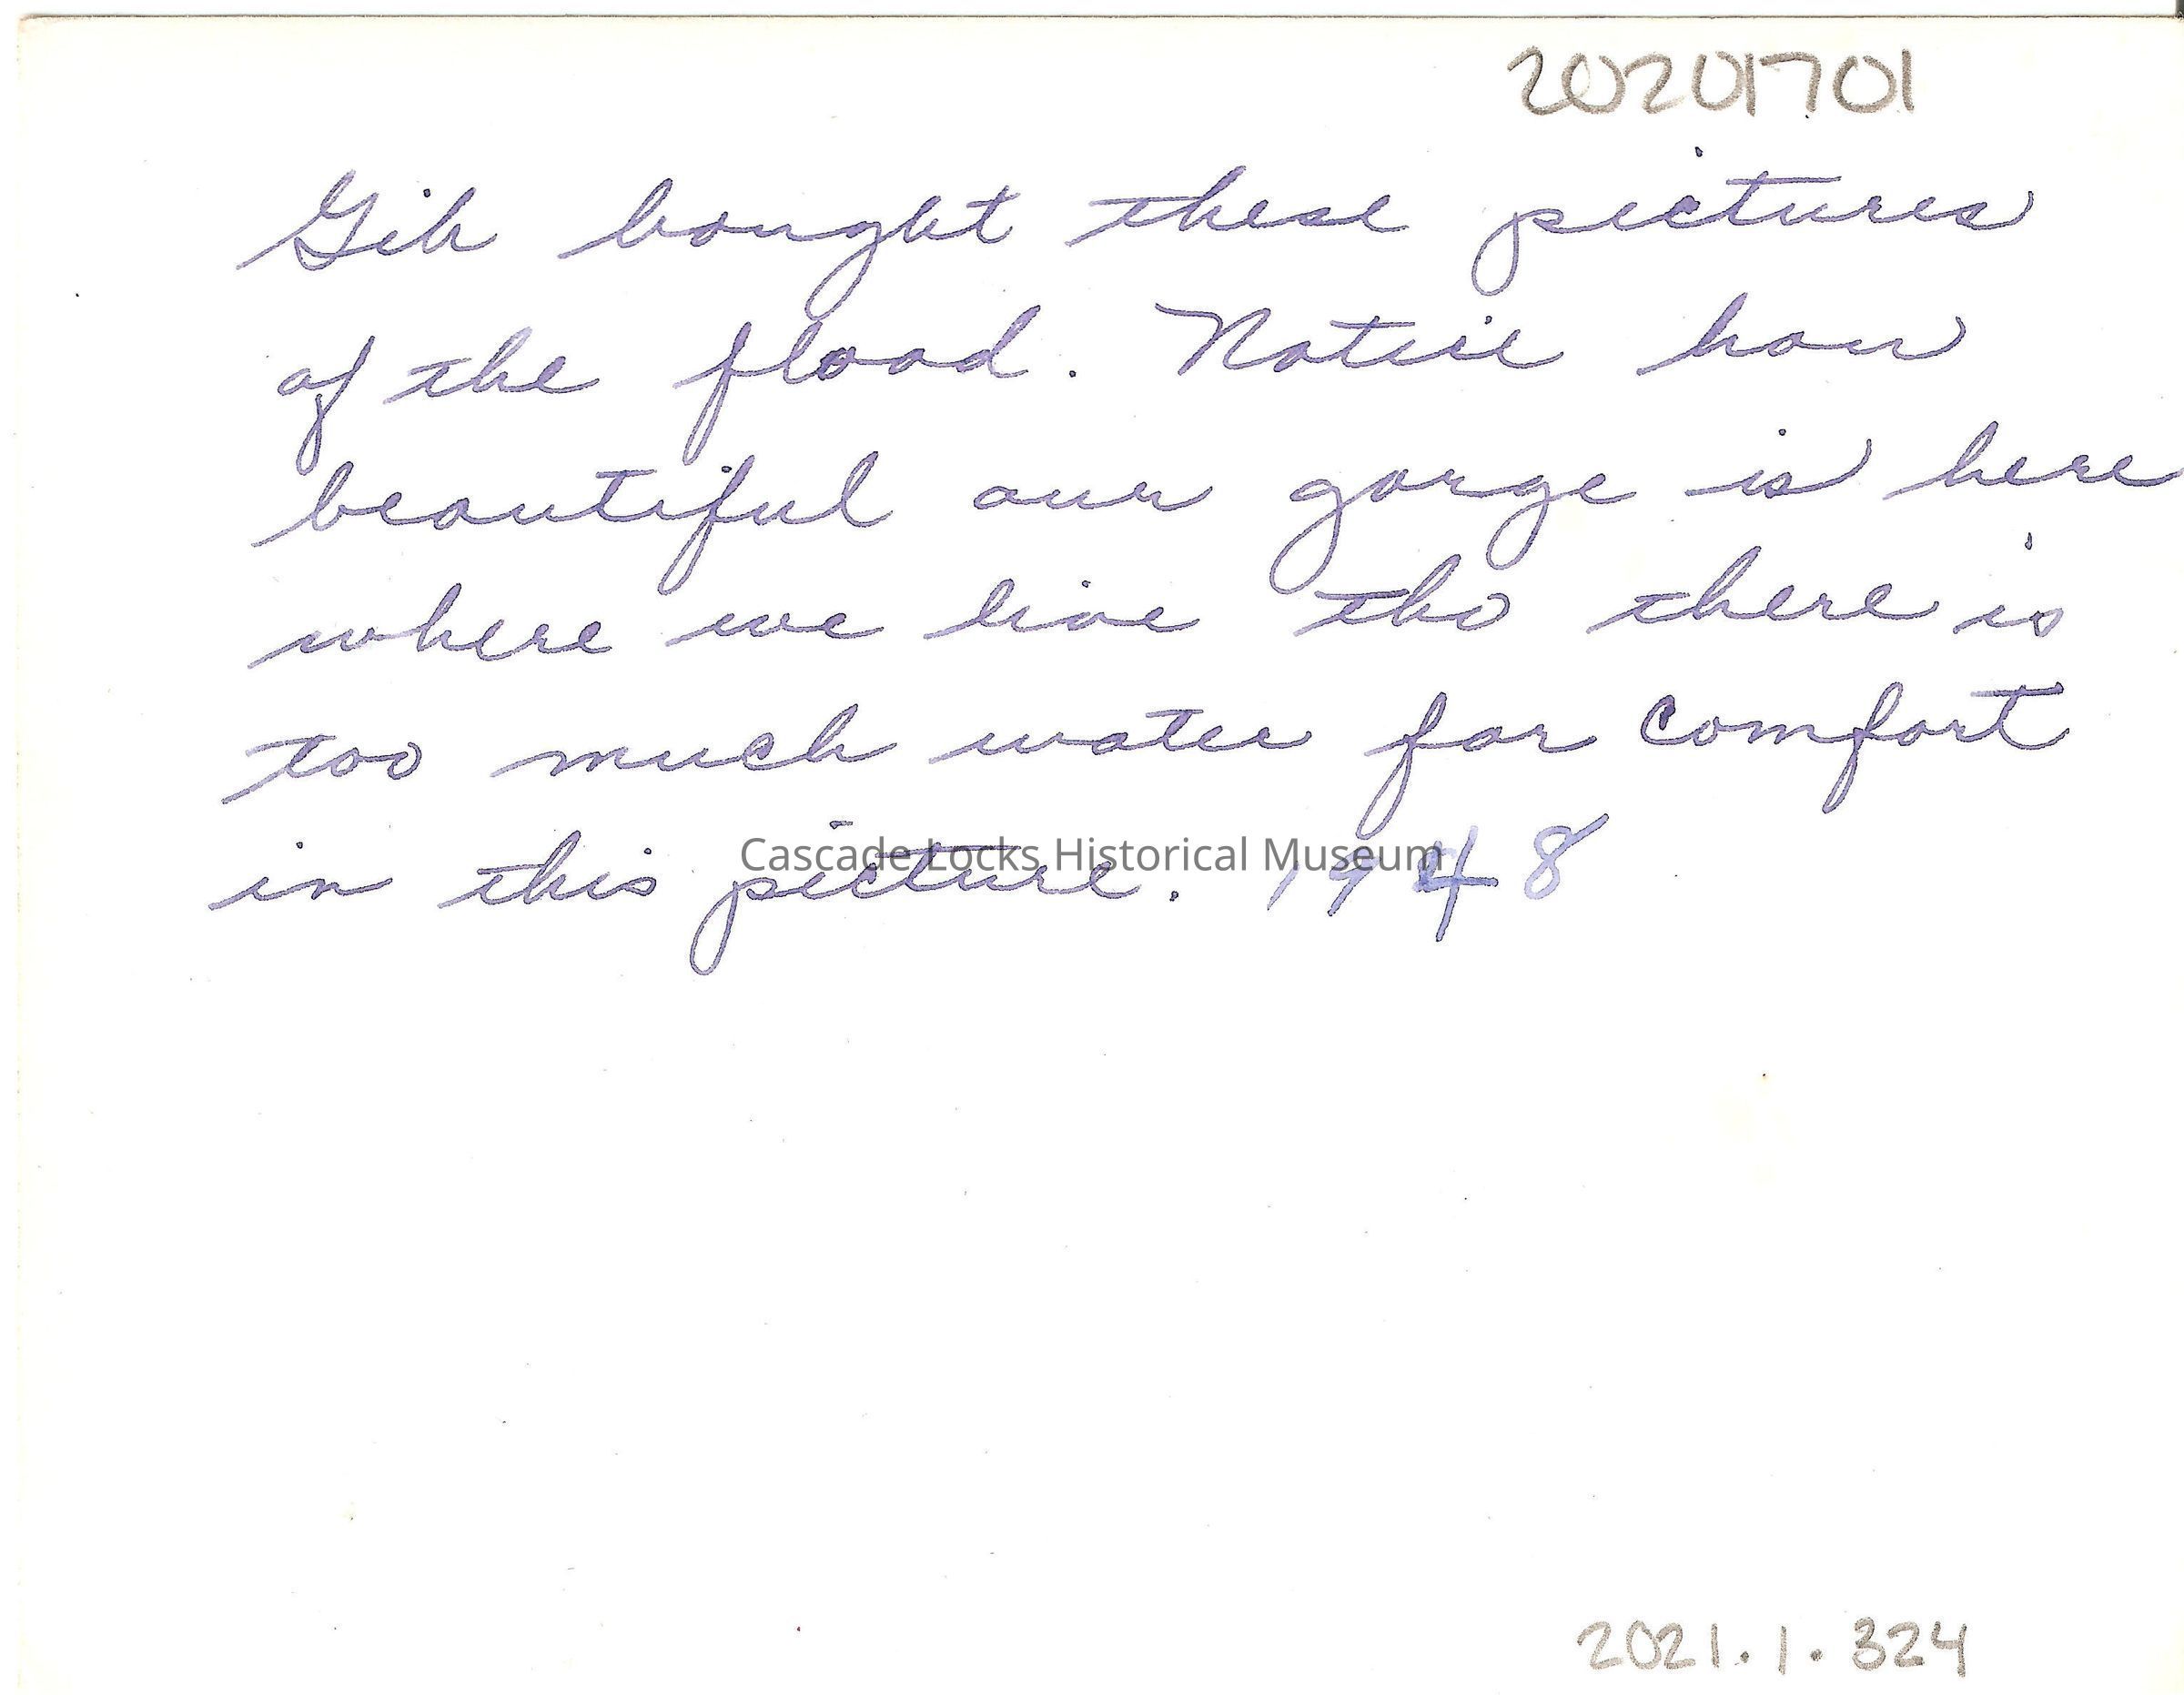 20201701
Gib bought these pictures
of the flood. Notice how
beautiful our gorge is here
where we live tho there is
too much water for comfort
in this picture. 1948
Cascade Locks Historical Museum
2021.1.324